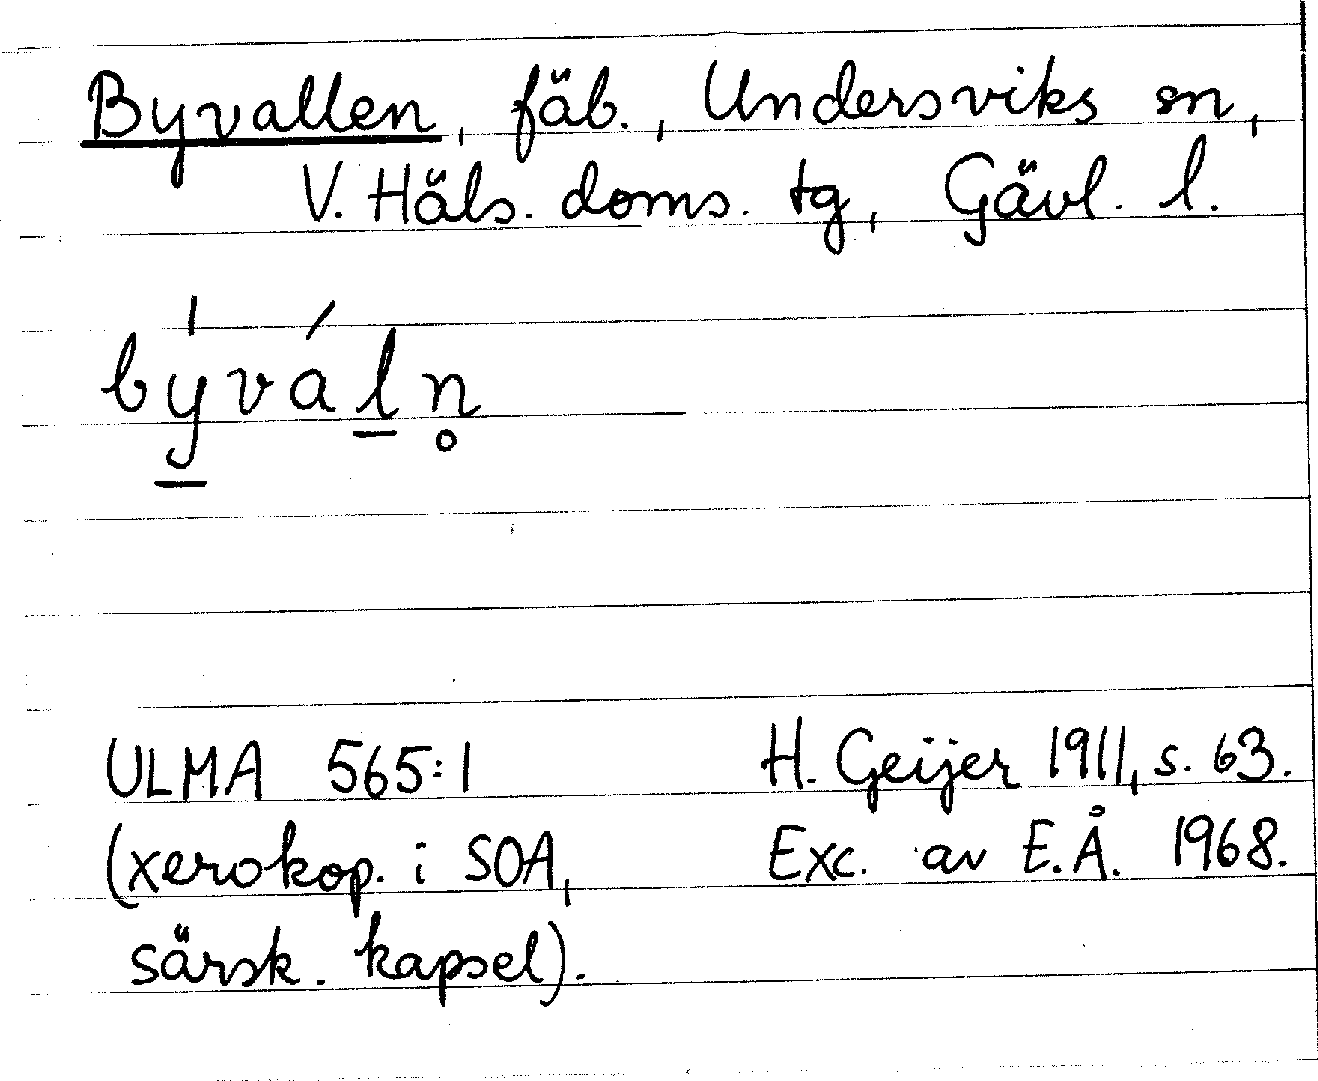 Byvallen, fäb., Undersviks sn,
V. Häls. doms. tg, Gävl. l.
by̱̍váḻn̥
ULMA 565:1
H. Geijer 1911, s. 63.
(xerokop. i SOA,
Exc. av E.Å. 1968.
särsk. kapsel).